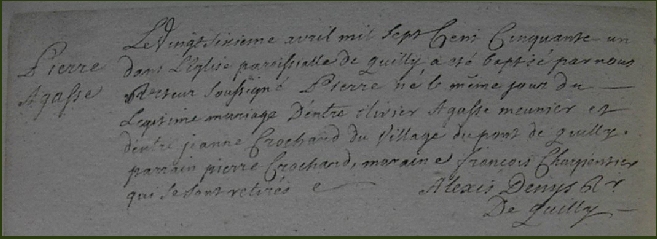 Pierre
Agasse
Le vingt sixieme avril mil sept Cent Cinquante un
dans l'Eglise paroissialle de quilly a eté baptisé par nous
Recteur soussigné Pierre né le même jour du
Legitime mariage D'entre olivier Agasse meunier et
d'entre jeanne Crochard du village du pont de quilly.
parrain pierre Crochard, maraine françois Charpentier
qui se sont retirés
Alexis Denys Rr
De quilly